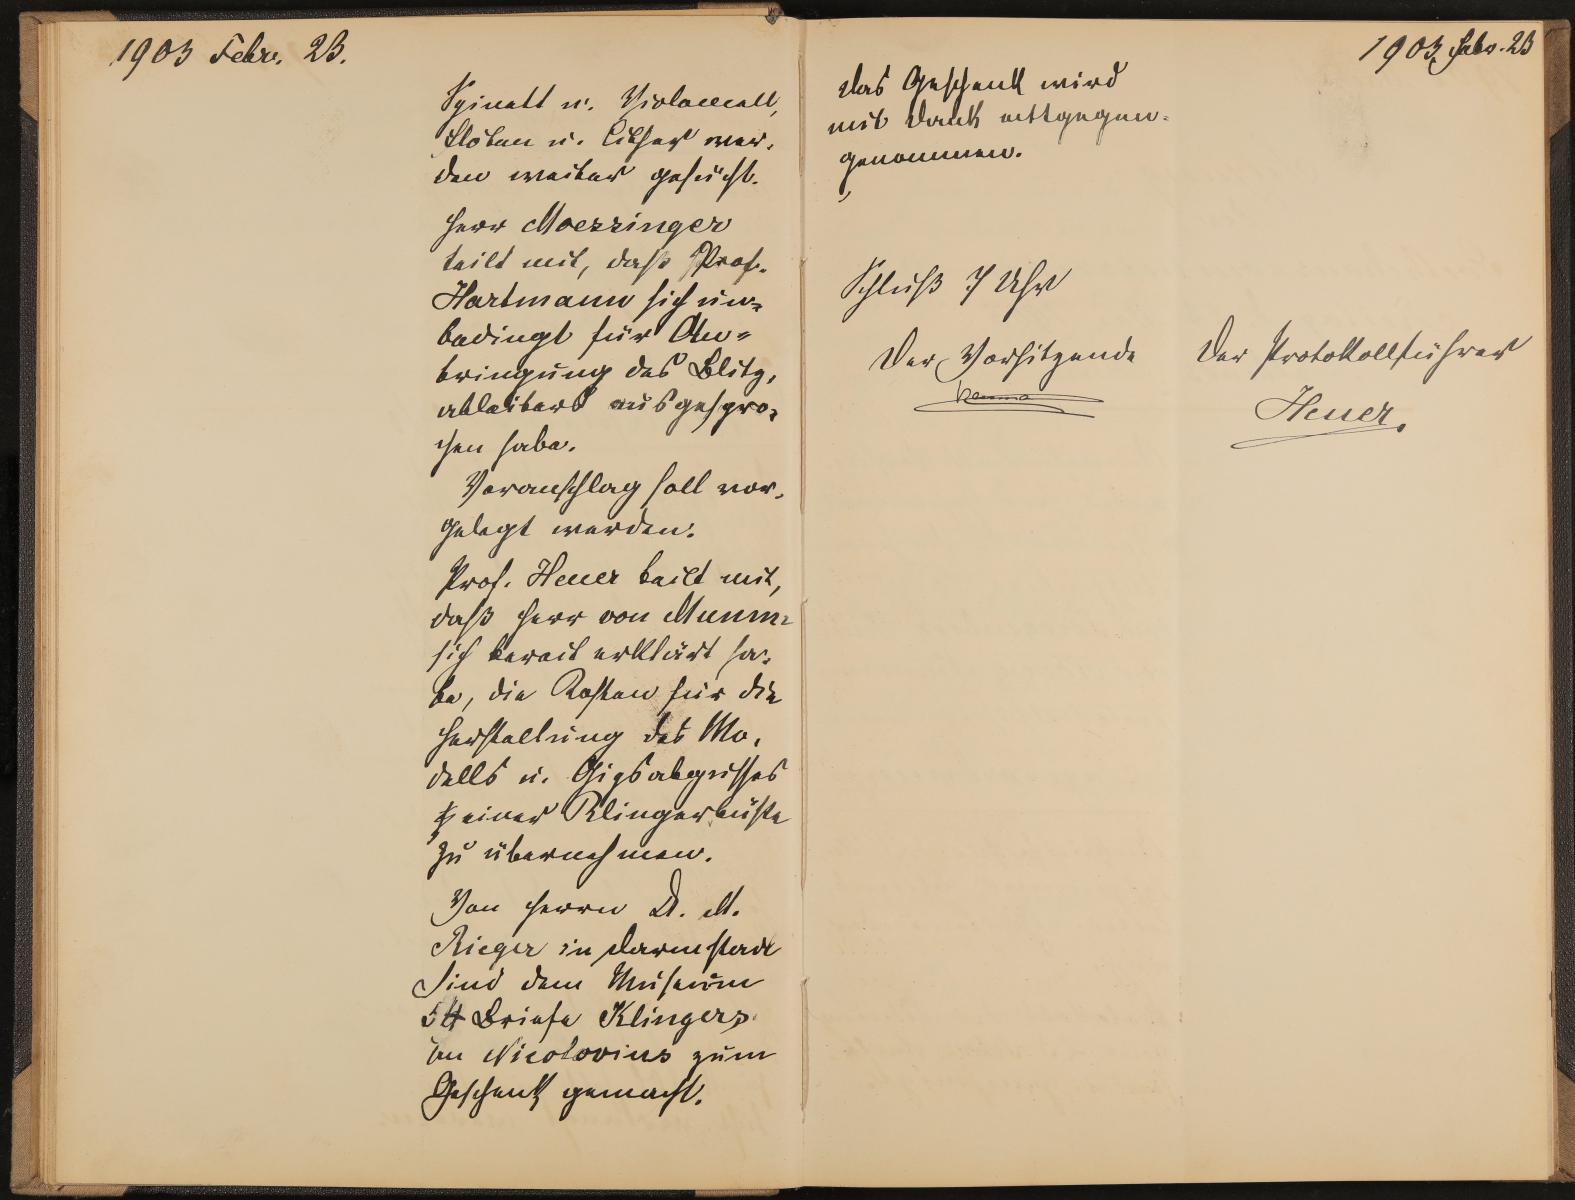 1903 Febr. 23.
Spinett u. Violoncell,
Flöten u. Zither wer-
den weiter gesucht.
Herr Moessinger
teilt mit, daß Prof.
Hartmann sich un-
bedingt für An-
bringung des Blitz-
ableiters ausgespro-
chen habe.
Voranschlag soll vor-
gelegt werden.
Prof. Heuer teilt mit,
daß Herr von Mumm
sich bereit erklärt ha-
be, die Kosten für die
Herstellung des Mo-
dells u. Gipsabgusses
einer Klingerbüste
zu übernehmen.
Von Herrn Dr. M.
Rieger in Darmstadt
sind dem Museum
54 Briefe Klingers
an Nicolovius zum
Geschenk gemacht.
1903 Febr. 23
Das Geschenk wird
mit Dank entgegen-
genommen.
Schluß 7 Uhr
Der Vorsitzende
Der Protokollführer
Heuer.